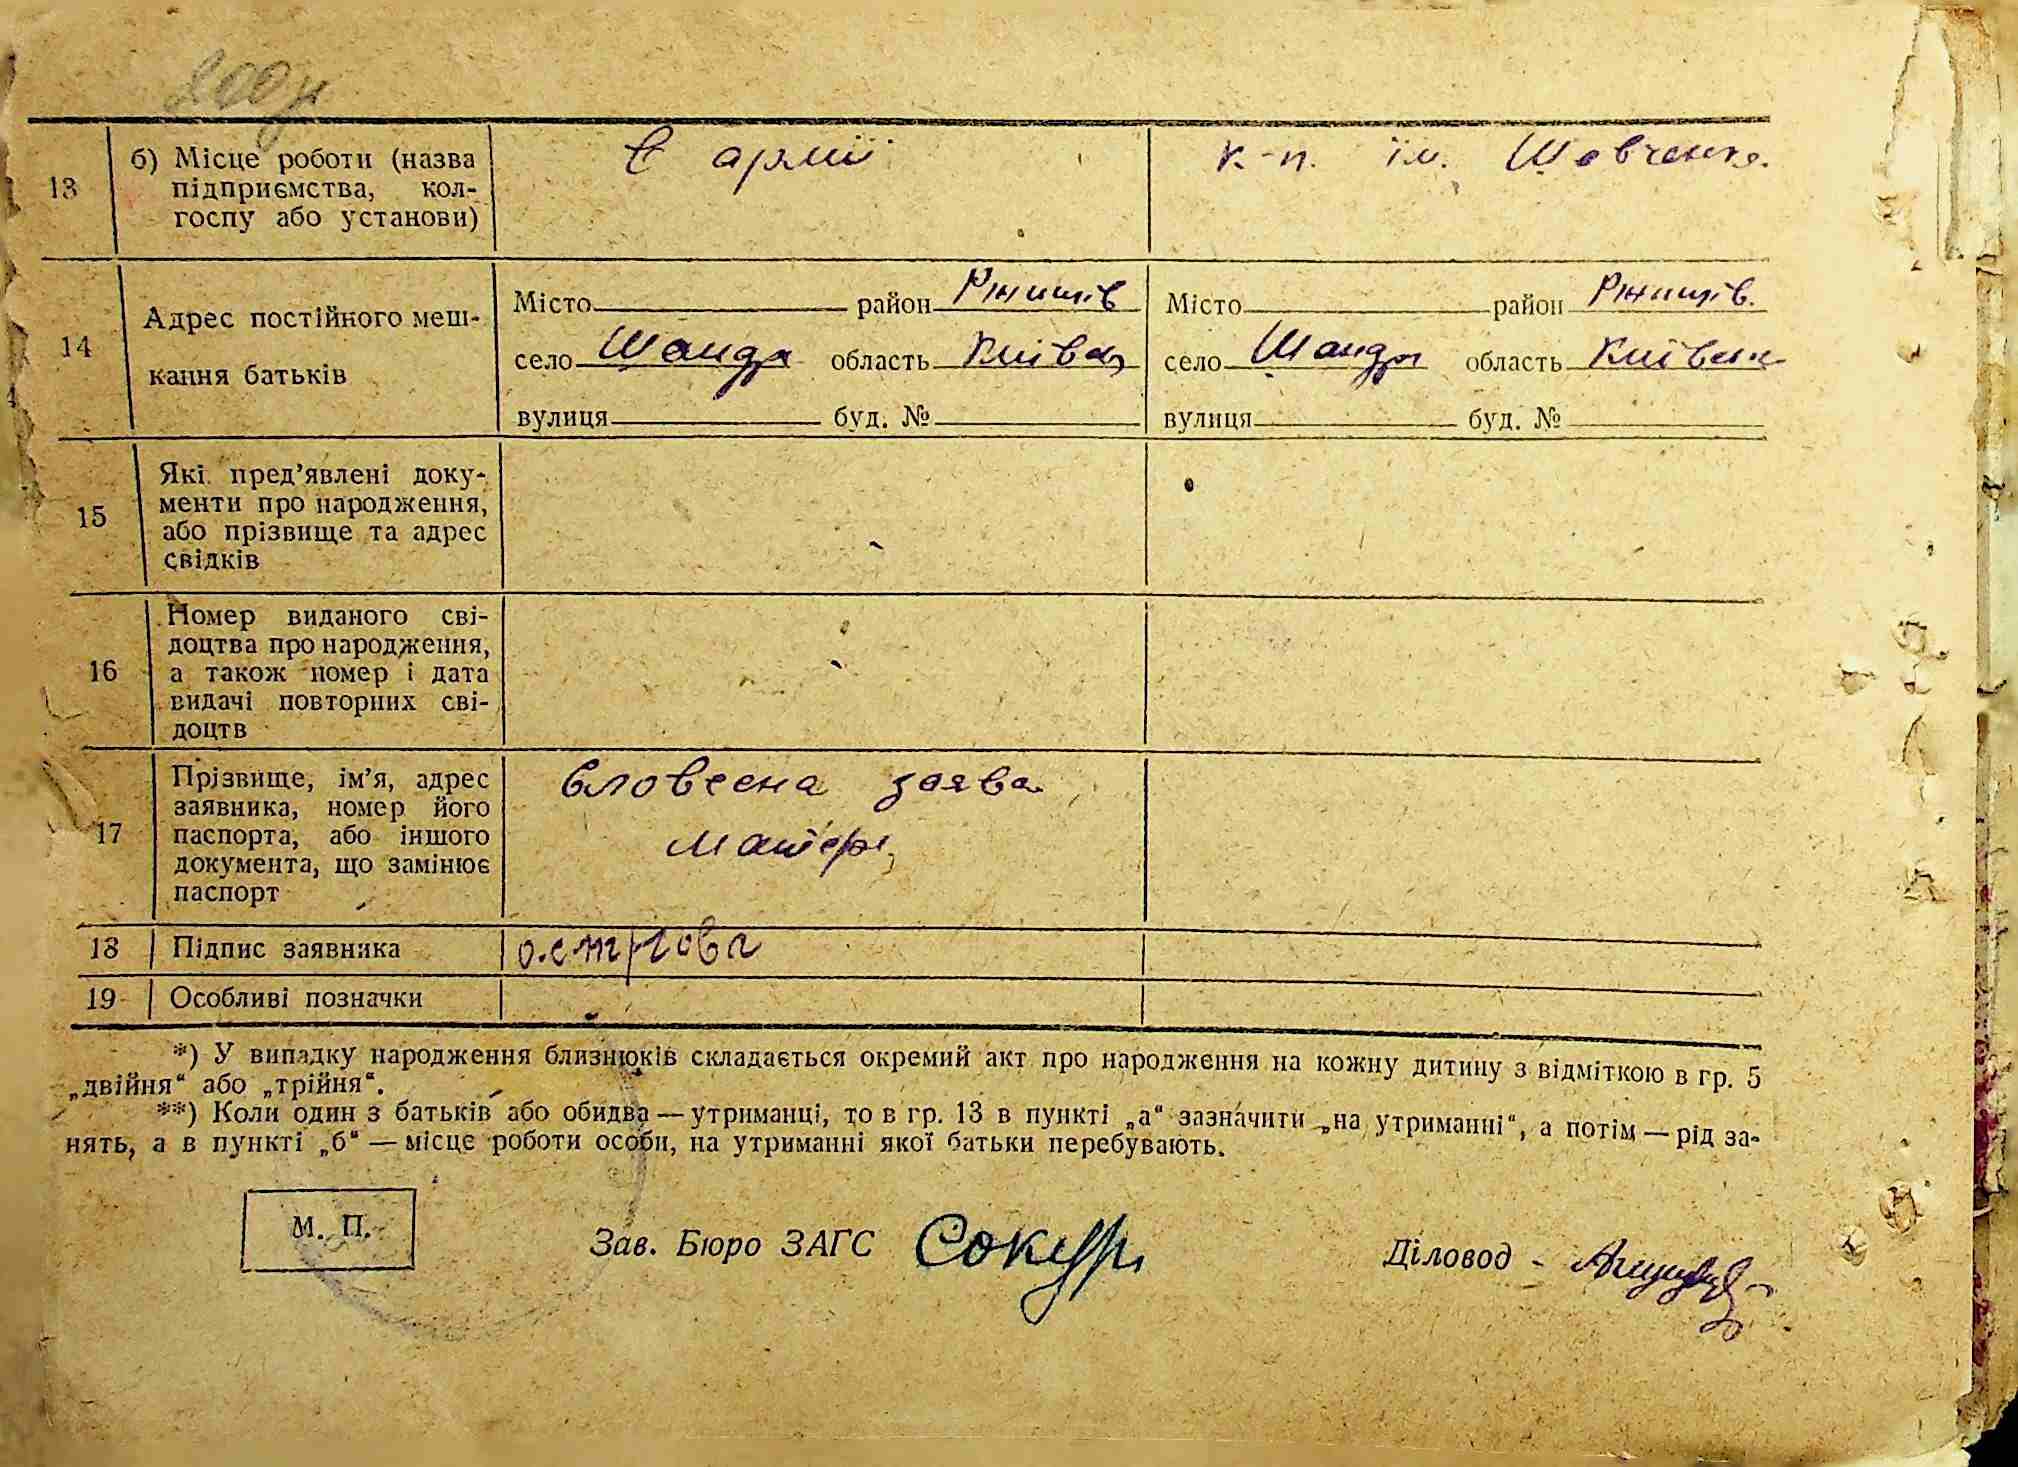 13
б) Місце роботи (назва
підприємства, кол-
госпу або установи)
В армії
к-п. ім. Шевченка.
14
Адрес постійного меш-
кання батьків
Місто район Ржищів
село Шанда область Київськ
вулиця буд. №
Місто район Ржищів.
село Шанда область Київськ
вулиця буд. №
15
Які пред'явлені доку-
менти про народження,
або прізвище та адрес
свідків
16
Номер виданого сві-
доцтва про народження,
а також номер і дата
видачі повторних сві-
доцтв
17
Прізвище, ім'я, адрес
заявника, номер його
паспорта, або іншого
документа, що замінює
паспорт
Словесна заява
матери
18 Підпис заявника
19 Особливі позначки
*) У випадку народження близнюків складається окремий акт про народження на кожну дитину з відміткою в гр. 5
„двійня“ або „трійня“.
**) Коли один з батьків або обидва — утриманці, то в гр. 13 в пункті „а“ зазначити „на утриманні“, а потім — рід за-
нять, а в пункті „б“ — місце роботи особи, на утриманні якої батьки перебувають.
М. П.
Зав. Бюро ЗАГС Сокур
Діловод -